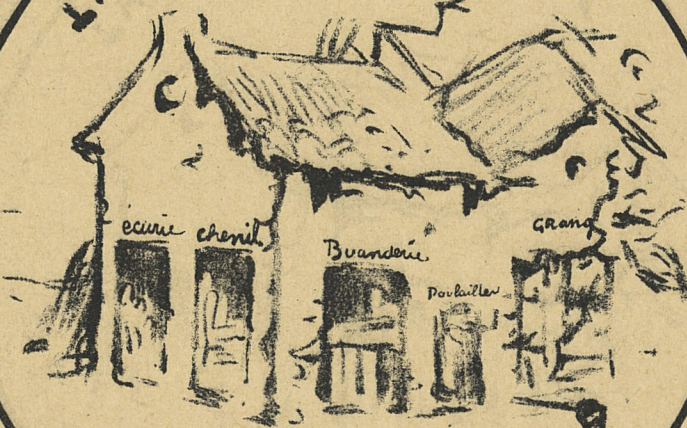 écurie
chenil
Buanderie
Poulailler
Grang